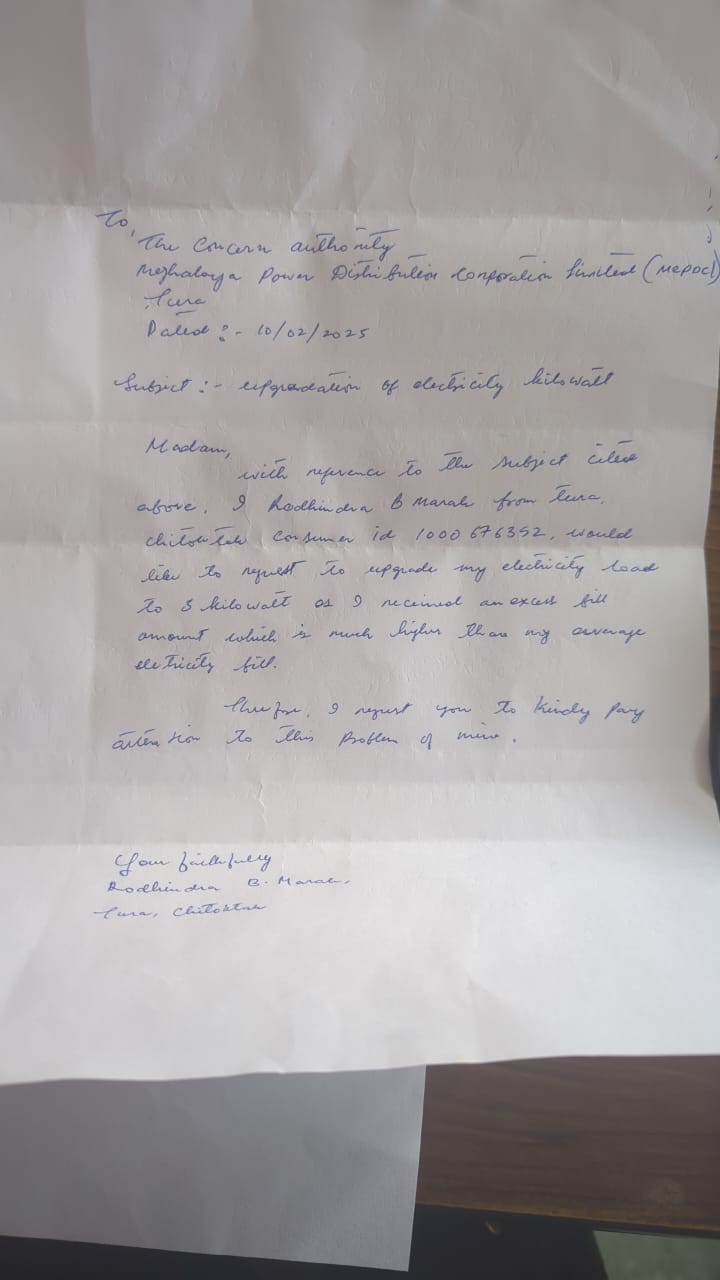 To,
The Concern authority
Meghalaya Power Distribution Corporation Limited (MePDCl)
Tura
Dated :- 10/02/2025
Subject :- upgradation of electricity kilowatt
Madam,
with reference to the subject cited
above, I Rodhindra B Marak from tura,
chitoktak consumer id 1000676352, would
like to request to upgrade my electricity load
to 5 kilowatt as I received an excess bill
amount which is much higher than my average
electricity bill.
Therefore, I request you to kindly pay
attention to this problem of mine.
Your faithfully
Rodhindra B. Marak,
Tura, Chitoktak